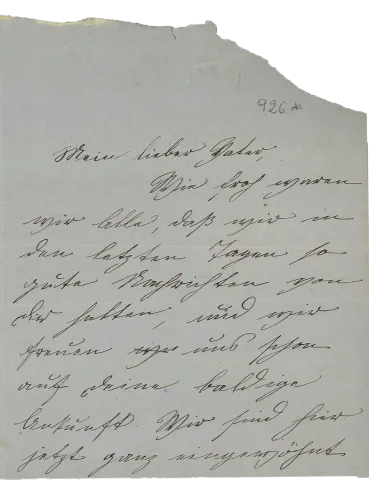 926
Mein lieber Vater,
Wie froh waren
wir Alle, daß wir in
den letzten Tagen so
gute Nachrichten von
Dir hatten, und wir
freuen uns schon
auf Deine baldige
Ankunft. Wir sind hier
jetzt ganz eingewöhnt